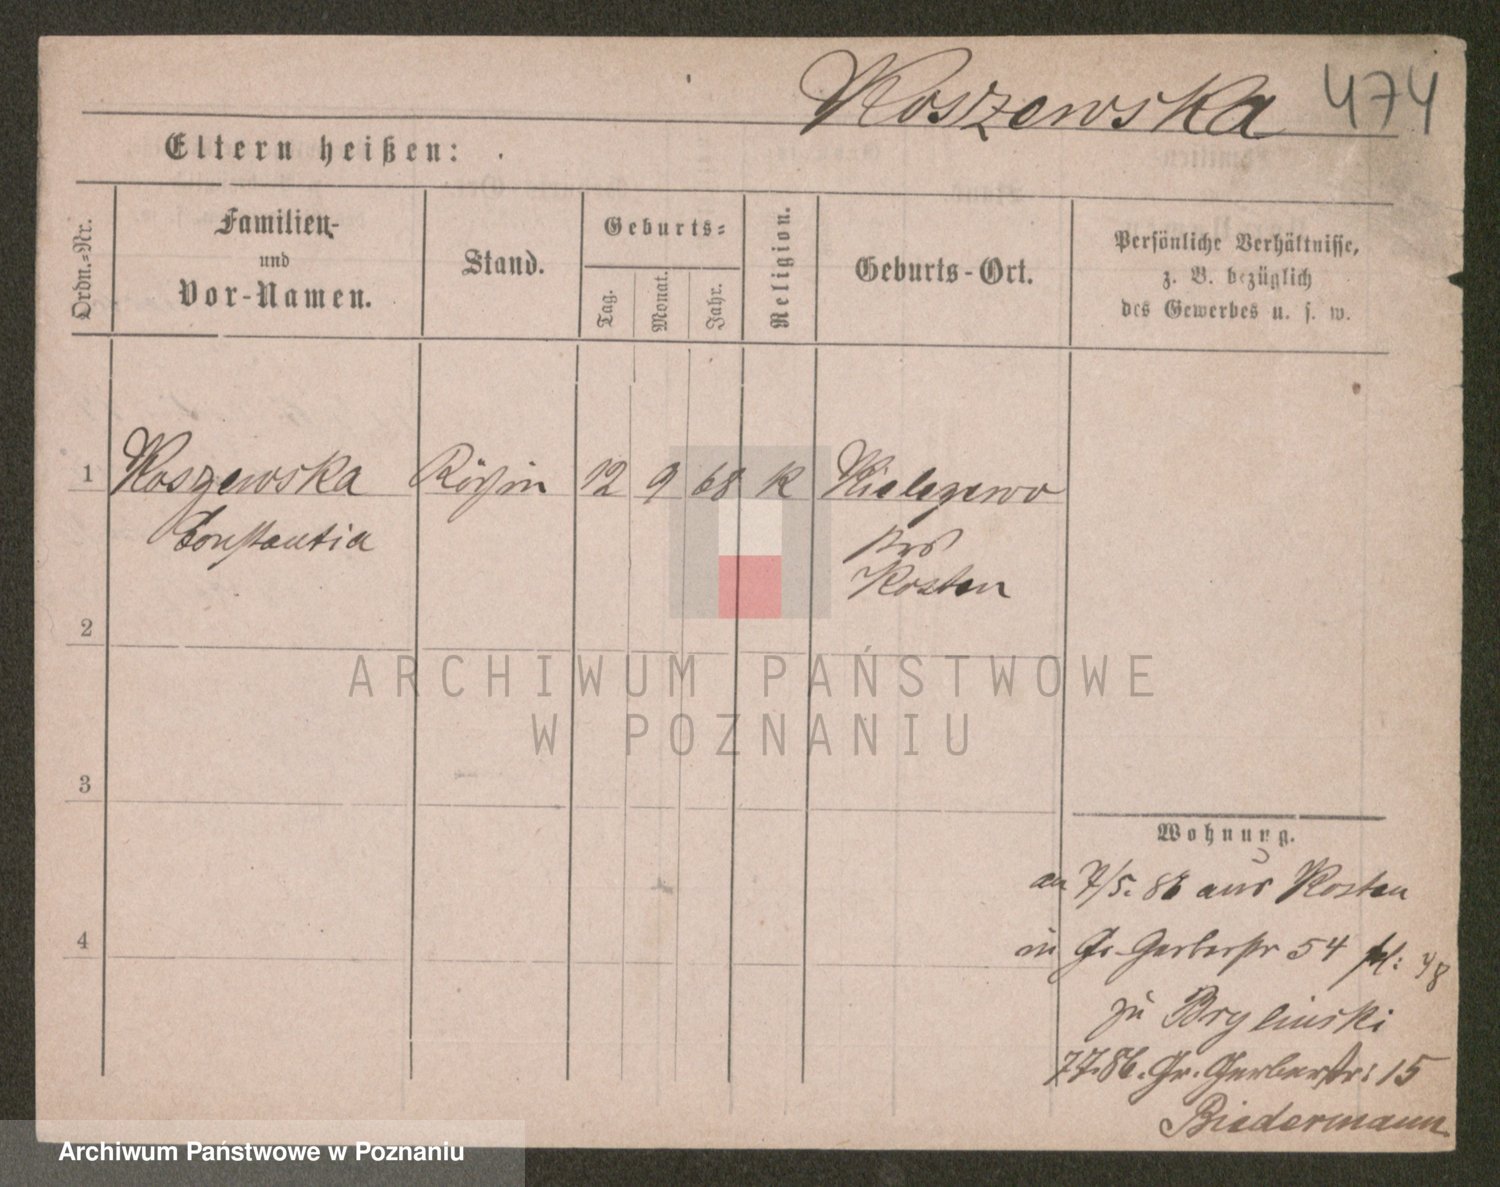 Koszewska 474
Eltern heißen:
Ordn.-Nr.
Familien-
und
Vor-Namen.
Stand.
Geburts-
Tag.
Monat.
Jahr.
Religion.
Geburts-Ort.
Persönliche Verhältnisse,
z. B. bezüglich
des Gewerbes u. s. w.
1 Koszewska Köchin 12 9 68 K Kielczewo
Constantia
Krs
Kosten
2
3
4
Wohnung.
an 7/5. 86 aus Kosten
in Gr. Gerberstr 54 48
zu Brylinski
7.7.86. Gr. Gerberstr: 15
Biedermann
ARCHIWUM PAŃSTWOWE
W POZNANIU
Archiwum Państwowe w Poznaniu